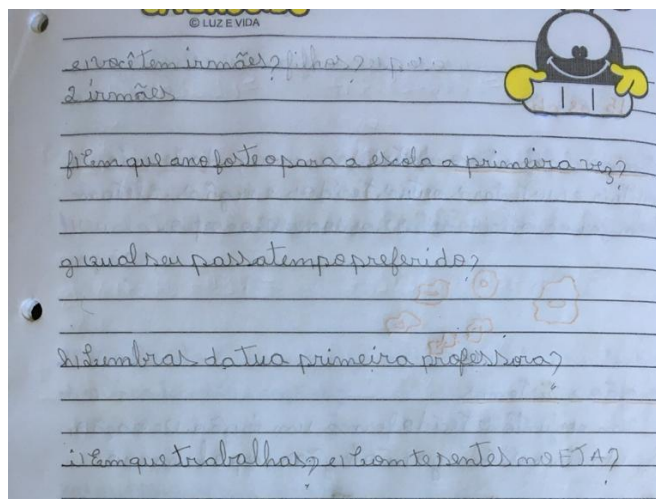 © LUZ E VIDA
e) você tem irmães? filhos?
2 irmães
f) Em que ano foste o para a escola a primeira vez?
g) qual seu passatempo preferido?
h) Lembras da tua primeira professora?
i) Em que trabalhas? e) Com te sentes no EJA?